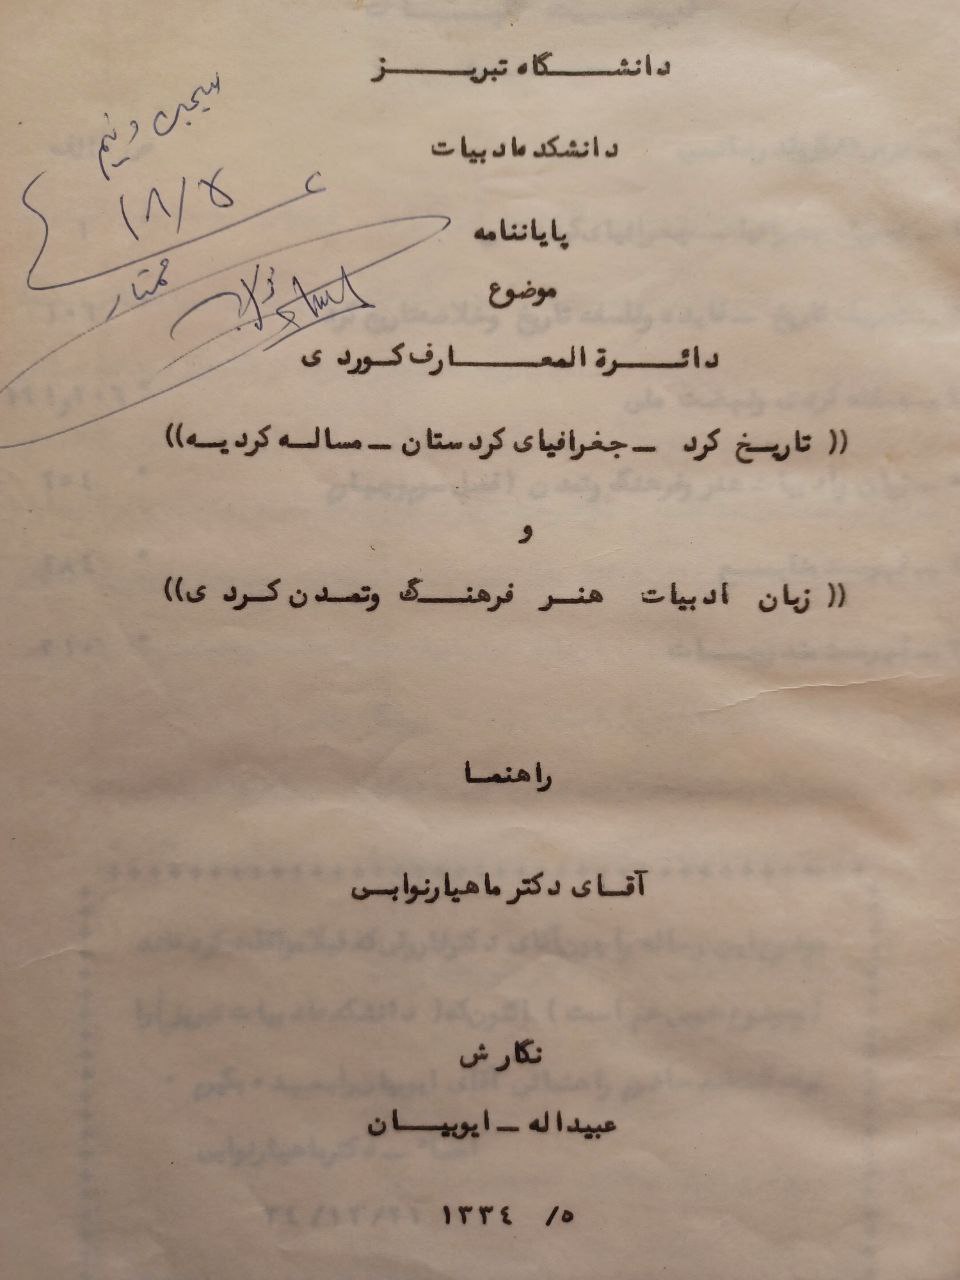 دانشگاه تبریز
دانشکده ادبیات
پایاننامه
موضوع
دائرة المعارف کوردی
(( تاریخ کرد – جغرافیای کردستان – مساله کردیه))
و
(( زبان ادبیات هنر فرهنگ وتمدن کردی))
راهنما
آقای دکتر ماهیارنوابی
نگارش
عبیداله – ایوبیان
۱۳۳٤ /٥
و نیم
۱۸/۵
ممتاز